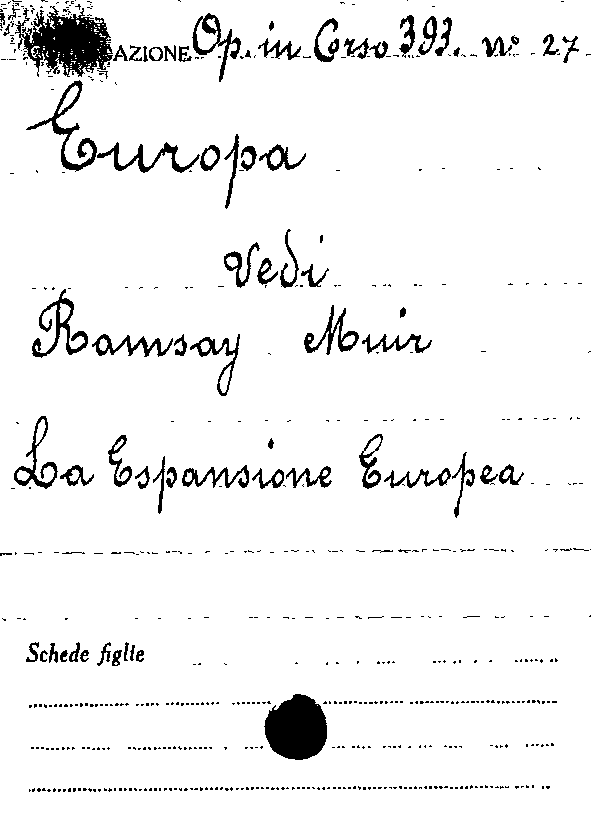 AZIONE Op. in Corso 393. n° 27
Europa
Vedi
Ramsay Muir
La Espansione Europea
Schede figlie